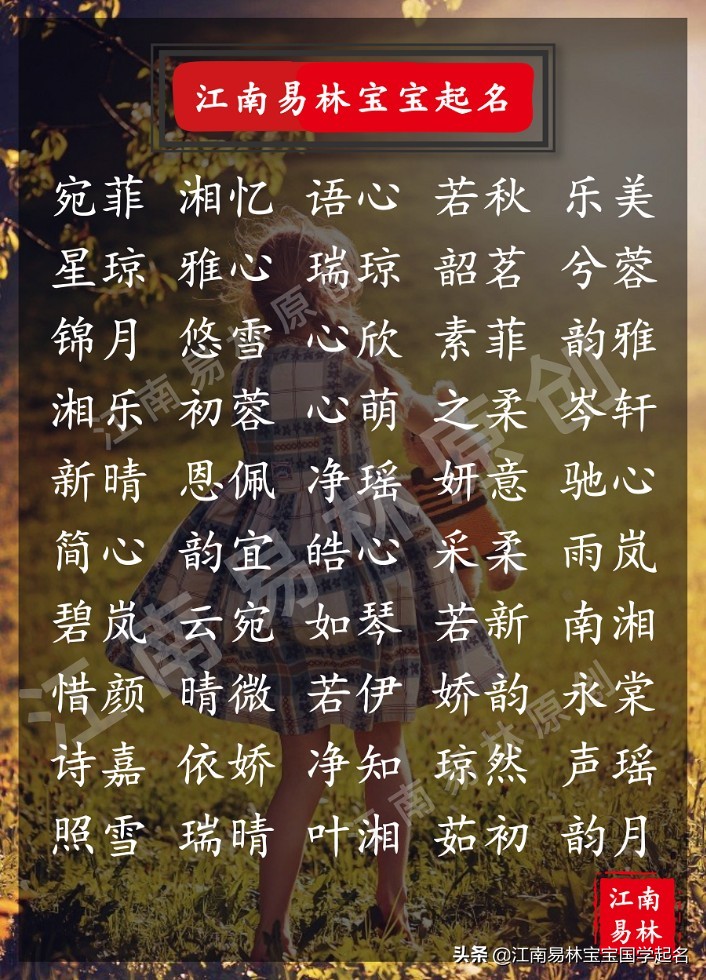 江南易林宝宝起名
宛菲 湘忆 语心 若秋 乐美
星琼 雅心 瑞琼 韶茗 兮蓉
锦月 悠雪 心欣 素菲 韵雅
湘乐 初蓉 心萌 之柔 岑轩
新晴 恩佩 净瑶 妍意 驰心
简心 韵宜 皓心 采柔 雨岚
碧岚 云宛 如琴 若新 南湘
惜颜 晴微 若伊 娇韵 永棠
诗嘉 依娇 净知 琼然 声瑶
照雪 瑞晴 叶湘 茹初 韵月
江南易林原创
江南易林原创
江南易林原创
江南
易林
头条 @江南易林宝宝国学起名